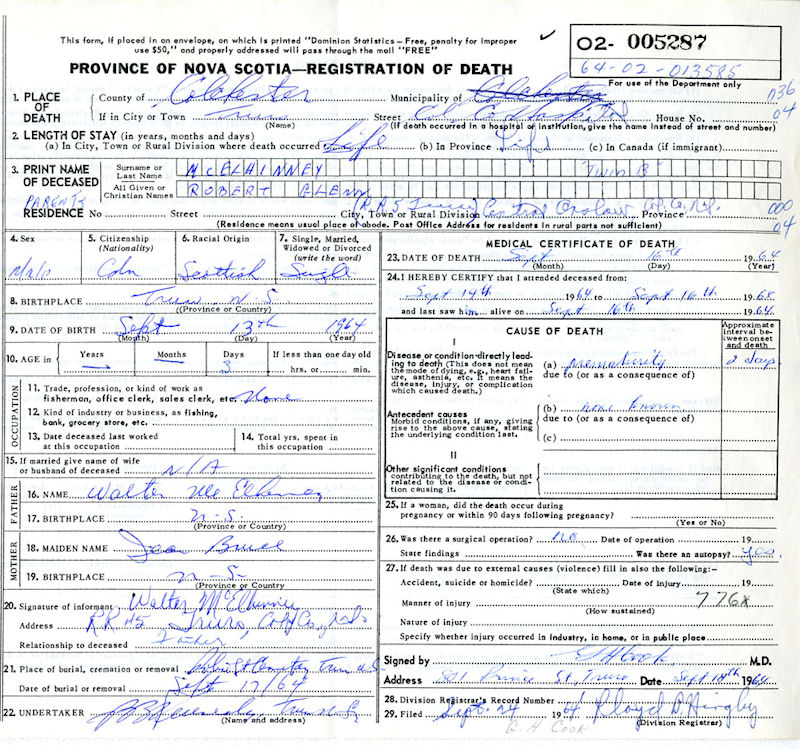 This form, if placed in an envelope, on which is printed "Dominion Statistics – Free, penalty for improper
use $50," and properly addressed will pass through the mail "FREE"
02- 005287
64-02-013585
PROVINCE OF NOVA SCOTIA—REGISTRATION OF DEATH
For use of the Department only
1. PLACE OF DEATH County of Colchester Municipality of Colchester 036
If in City or Town Truro (Name) Street Col. Co. Hospital House No. 04
(If death occurred in a hospital or institution, give the name instead of street and number)
2. LENGTH OF STAY (in years, months and days)
(a) In City, Town or Rural Division where death occurred Life (b) In Province Life (c) In Canada (if immigrant)
3. PRINT NAME OF DECEASED Surname or Last Name McELHINNEY Twin B
All Given or Christian Names ROBERT GLENN
PARENTS
RESIDENCE No Street City, Town or Rural Division R.R 5 Truro Central Onslow Col. Co. N.S. Province 000
(Residence means usual place of abode. Post Office Address for residents in rural parts not sufficient) 04
4. Sex Male
5. Citizenship (Nationality) Cdn
6. Racial Origin Scottish
7. Single, Married, Widowed or Divorced (write the word) Single
8. BIRTHPLACE Truro N.S.
(Province or Country)
9. DATE OF BIRTH Sept 13th 1964
(Month) (Day) (Year)
10. AGE in Years — Months — Days 3 If less than one day old hrs. or min.
OCCUPATION
11. Trade, profession, or kind of work as fisherman, office clerk, sales clerk, etc. None
12. Kind of industry or business, as fishing, bank, grocery store, etc.
13. Date deceased last worked at this occupation
14. Total yrs. spent in this occupation
15. If married give name of wife or husband of deceased N/A
FATHER
16. NAME Walter McElhinney
17. BIRTHPLACE N.S.
(Province or Country)
MOTHER
18. MAIDEN NAME Jean Bruce
19. BIRTHPLACE N.S.
(Province or Country)
20. Signature of informant Walter McElhinney
Address R.R #5 Truro, Col. Co, N.S.
Relationship to deceased Father
21. Place of burial, cremation or removal Cemetery Truro N.S.
Date of burial or removal Sept 17/64
22. UNDERTAKER Truro N.S.
(Name and address)
MEDICAL CERTIFICATE OF DEATH
23. DATE OF DEATH Sept 16th 1964
(Month) (Day) (Year)
24. I HEREBY CERTIFY that I attended deceased from:
Sept 14th 1964 to Sept 16th 1964
and last saw him alive on Sept 16th 1964
CAUSE OF DEATH
Approximate interval between onset and death
I
Disease or condition directly leading to death (This does not mean the mode of dying, e.g., heart failure, asthenia, etc. It means the disease, injury, or complication which caused death.)
(a) prematurity 2 days
due to (or as a consequence of)
Antecedent causes
Morbid conditions, if any, giving rise to the above cause, stating the underlying condition last.
(b) none known
due to (or as a consequence of)
(c)
II
Other significant conditions
contributing to the death, but not related to the disease or condition causing it.
25. If a woman, did the death occur during
pregnancy or within 90 days following pregnancy?
(Yes or No)
26. Was there a surgical operation? no Date of operation 19
State findings Was there an autopsy? yes
27. If death was due to external causes (violence) fill in also the following:-
Accident, suicide or homicide? Date of injury 19
(State which)
Manner of injury 776X
(How sustained)
Nature of injury
Specify whether injury occurred in industry, in home, or in public place
Signed by Cook M.D.
Address Prince St, Truro Date Sept 18th 1964
28. Division Registrar's Record Number
29. Filed Sept. 24 1964 Lloyd
(Division Registrar)
R H COOK